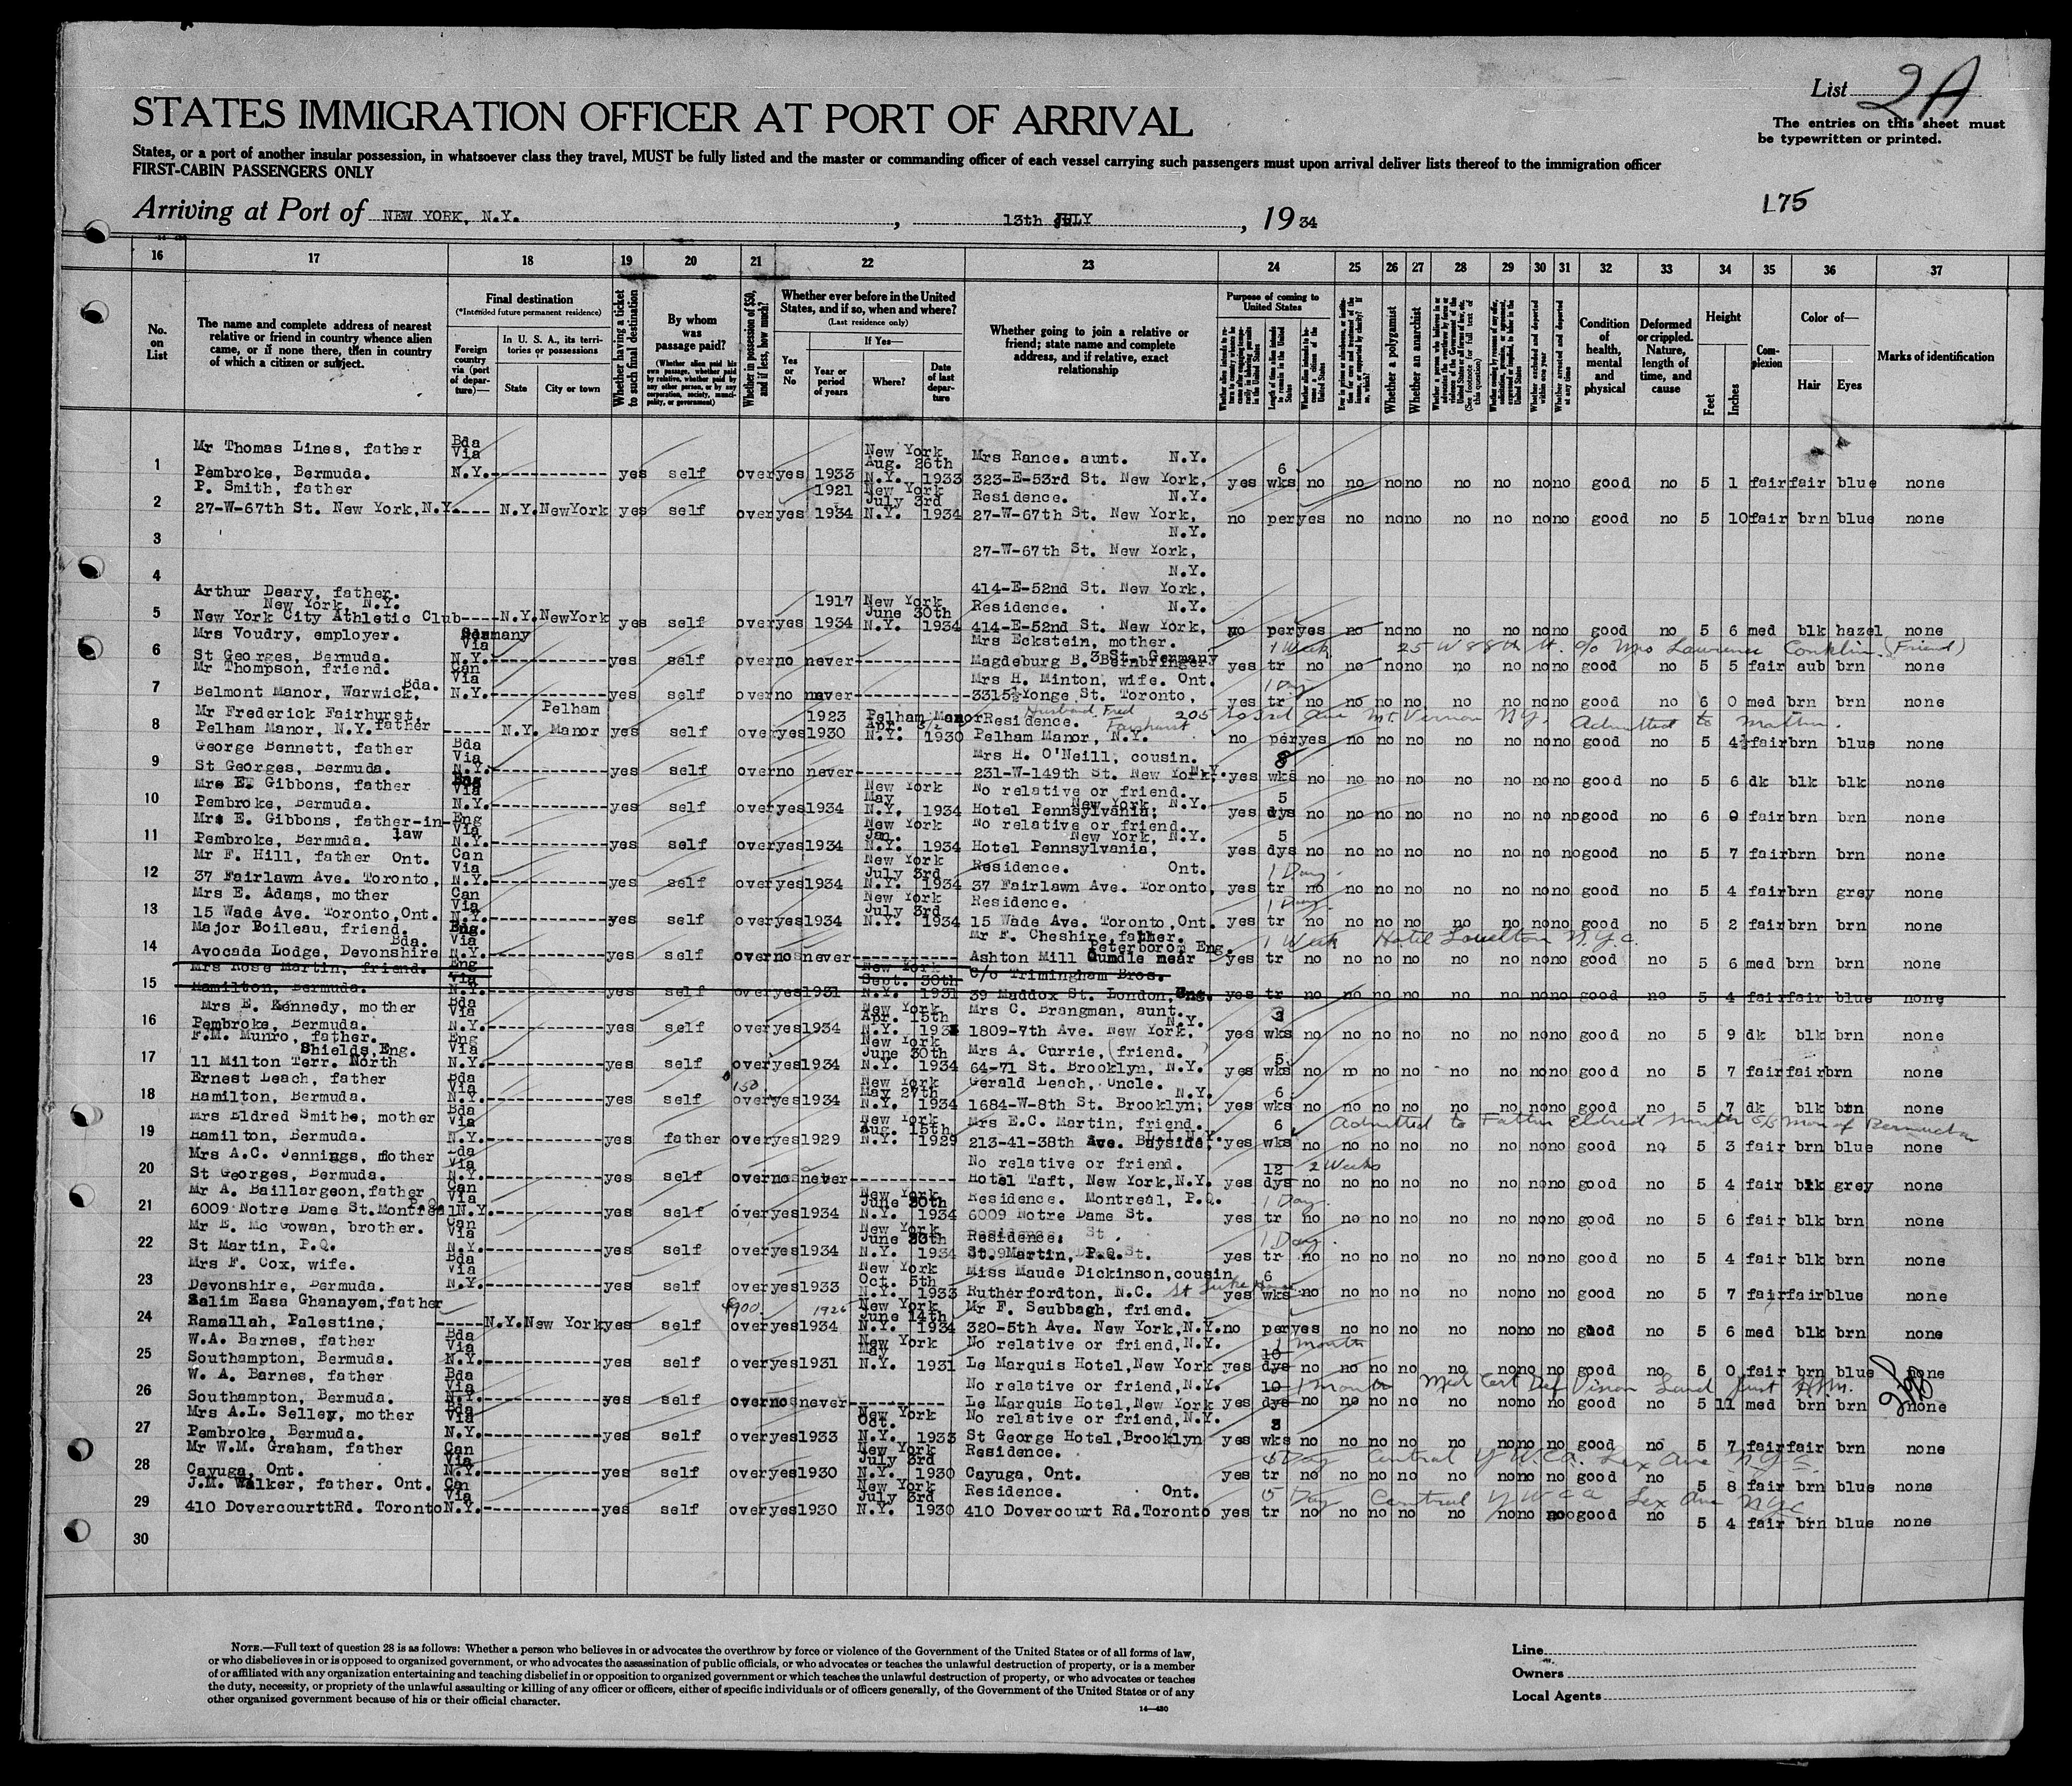 List 2A
The entries on this sheet must
be typewritten or printed.
STATES IMMIGRATION OFFICER AT PORT OF ARRIVAL
States, or a port of another insular possession, in whatsoever class they travel, MUST be fully listed and the master or commanding officer of each vessel carrying such passengers must upon arrival deliver lists thereof to the immigration officer
FIRST-CABIN PASSENGERS ONLY
175
Arriving at Port of NEW YORK, N.Y. , 13th JULY , 19 34
16 17 18 19 20 21 22 23 24 25 26 27 28 29 30 31 32 33 34 35 36 37
No. on List
The name and complete address of nearest relative or friend in country whence alien came, or if none there, then in country of which a citizen or subject.
Final destination
(*Intended future permanent residence)
Foreign country via (port of departure)—
In U. S. A., its territories or possessions
State City or town
Whether having a ticket to such final destination
By whom was passage paid?
(Whether alien paid his own passage, whether paid by relative, whether paid by any other person, or by any corporation, society, municipality, or government)
Whether in possession of $50, and if less, how much?
Whether ever before in the United States, and if so, when and where?
(Last residence only)
Yes or No
If Yes—
Year or period of years
Where?
Date of last departure
Whether going to join a relative or friend; state name and complete address, and if relative, exact relationship
Purpose of coming to United States
Length of time alien intends to remain in the United States
Whether a polygamist
Whether an anarchist
Condition of health, mental and physical
Deformed or crippled. Nature, length of time, and cause
Height
Feet Inches
Complexion
Color of—
Hair Eyes
Marks of identification
1 Mr Thomas Lines, father Bda Via New York Aug. 26th Mrs Rance. aunt. N.Y. 6
Pembroke, Bermuda. N.Y. yes self over yes 1933 N.Y. 1933 323-E-53rd St. New York, yes wks no no no no no no no no good no 5 1 fair fair blue none
2 P. Smith, father 1921 New York July 3rd Residence. N.Y.
27-W-67th St. New York, N.Y. N.Y. NewYork yes self over yes 1934 N.Y. 1934 27-W-67th St. New York, no per yes no no no no no no no good no 5 10 fair brn blue none
3 N.Y.
27-W-67th St. New York,
4 N.Y.
414-E-52nd St. New York,
5 Arthur Deary, father. New York, N.Y. 1917 New York June 30th Residence. N.Y.
New York City Athletic Club N.Y. NewYork yes self over yes 1934 N.Y. 1934 414-E-52nd St. New York, no per yes no no no no no no no good no 5 6 med blk hazel none
6 Mrs Voudry, employer. Germany Via Mrs Eckstein, mother. 1 Week 25 W 88th St. c/o Mrs Lawrence Conklin (Friend)
St Georges, Bermuda. N.Y. yes self over no never Magdeburg B. 3 St. Germany yes tr no no no no no no no no good no 5 5 fair aub brn none
7 Mr Thompson, friend. Can Via Mrs H. Minton, wife. Ont. 1 Day
Belmont Manor, Warwick, Bda. N.Y. yes self over no never 3315½ Yonge St. Toronto, yes tr no no no no no no no no good no 6 0 med brn brn none
8 Mr Frederick Fairhurst, father Pelham 1923 Pelham Manor Residence. Husband Fred Fairhurst 205 So 3rd Ave Mt. Vernon N.Y. Admitted to Matthn.
Pelham Manor, N.Y. N.Y. Manor yes self over yes 1930 N.Y. 1930 Pelham Manor, N.Y. no per yes no no no no no no no good no 5 4½ fair brn blue none
9 George Bennett, father Bda Via Mrs H. O'Neill, cousin. 8
St Georges, Bermuda. N.Y. yes self over no never 231-W-149th St. New York. N.Y. yes wks no no no no no no no no good no 5 6 dk blk blk none
10 Mrs E. Gibbons, father Eng Via New York May No relative or friend. New York, N.Y. 5
Pembroke, Bermuda. N.Y. yes self over yes 1934 N.Y. 1934 Hotel Pennsylvania, yes dys no no no no no no no no good no 6 0 fair brn brn none
11 Mrs E. Gibbons, father-in-law Eng Via New York Jan. No relative or friend. New York, N.Y. 5
Pembroke, Bermuda. N.Y. yes self over yes 1934 N.Y. 1934 Hotel Pennsylvania, yes dys no no no no no no no no good no 5 7 fair brn brn none
12 Mr F. Hill, father Ont. Can Via New York July 3rd Residence. Ont. 1 Day
37 Fairlawn Ave. Toronto, N.Y. yes self over yes 1934 N.Y. 1934 37 Fairlawn Ave. Toronto, yes tr no no no no no no no no good no 5 4 fair brn grey none
13 Mrs E. Adams, mother Can Via New York July 3rd Residence. 1 Day
15 Wade Ave. Toronto, Ont. N.Y. yes self over yes 1934 N.Y. 1934 15 Wade Ave. Toronto, Ont. yes tr no no no no no no no no good no 5 2 fair brn brn none
14 Major Boileau, friend. Bda. Eng. Via Mr F. Cheshire, father. Peterboro, Eng. 1 Week Hotel N.Y.C.
Avocada Lodge, Devonshire N.Y. yes self over no never Ashton Mill Oundle near yes tr no no no no no no no no good no 5 6 med brn brn none
15 Mrs Rose Martin, friend. Eng Via New York Sept. 30th C/o Trimingham Bros.
Hamilton, Bermuda. N.Y. yes self over yes 1931 N.Y. 1931 39 Maddox St. London, Eng. yes tr no no no no no no no no good no 5 4 fair fair blue none
16 Mrs E. Kennedy, mother Bda Via New York Apr. 15th Mrs C. Brangman, aunt. N.Y. 3
Pembroke, Bermuda. N.Y. yes self over yes 1934 N.Y. 1809-7th Ave. New York, yes wks no no no no no no no no good no 5 9 dk blk brn none
17 F.M. Munro, father. Shields, Eng. Eng Via New York June 30th Mrs A. Currie, (friend. 5
11 Milton Terr. North N.Y. yes self over yes 1934 N.Y. 1934 64-71 St. Brooklyn, N.Y. yes wks no no no no no no no no good no 5 7 fair fair brn none
18 Ernest Leach, father Bda Via 150. New York May 27th Gerald Leach, Uncle. N.Y. 6
Hamilton, Bermuda. N.Y. yes self over yes 1934 N.Y. 1934 1684-W-8th St. Brooklyn, yes wks no no no no no no no no good no 5 7 dk blk brn none
19 Mrs Eldred Smithe, mother Bda Via New York Aug. 15th Mrs E.C. Martin, friend. L.I. N.Y. 6 Admitted to Father Eldred Smith S/S Mon of Bermuda
Hamilton, Bermuda. N.Y. yes father over yes 1929 N.Y. 1929 213-41-38th Ave. Bayside, yes wks no no no no no no no no good no 5 3 fair brn blue none
20 Mrs A.C. Jennings, mother Bda Via No relative or friend. 12 2 Weeks
St Georges, Bermuda. N.Y. yes self over no never Hotel Taft, New York, N.Y. yes dys no no no no no no no no good no 5 4 fair blk grey none
21 Mr A. Baillargeon, father P.Q. Can Via New York June 30th Residence. Montreal, P.Q. 1 Day
6009 Notre Dame St. Montreal N.Y. yes self over yes 1934 N.Y. 1934 6009 Notre Dame St. yes tr no no no no no no no no good no 5 6 fair blk brn none
22 Mr E. Mc Gowan, brother. Can Via New York June Residence. 1 Day
St Martin, P.Q. N.Y. yes self over yes 1934 N.Y. 1934 St. Martin, P.Q. yes tr no no no no no no no no good no 5 4 fair blk brn none
23 Mrs F. Cox, wife. Bda Via New York Oct. 5th Miss Maude Dickinson, cousin 6
Devonshire, Bermuda. N.Y. yes self over yes 1933 N.Y. 1933 Rutherfordton, N.C. St Lukes yes wks no no no no no no no no good no 5 7 fair fair blue none
24 Salim Easa Ghanayem, father $900. 1926 New York June 14th Mr F. Seubbagh, friend.
Ramallah, Palestine, N.Y. New York yes self over yes 1934 N.Y. 1934 320-5th Ave. New York, N.Y. no per yes no no no no no no no good no 5 6 med blk brn none
25 W.A. Barnes, father Bda Via New York May No relative or friend, N.Y. 10 1 month
Southampton, Bermuda. N.Y. yes self over yes 1931 N.Y. 1931 Le Marquis Hotel, New York yes dys no no no no no no no no good no 5 0 fair brn blue none
26 W. A. Barnes, father Bda Via No relative or friend, N.Y. 10 1 month Med Cert Def Vision
Southampton, Bermuda. N.Y. yes self over no never Le Marquis Hotel, New York yes dys no no no no no no no no good no 5 11 med brn brn none
27 Mrs A.L. Selley, mother Bda Via New York Oct. No relative or friend, N.Y. 3
Pembroke, Bermuda. N.Y. yes self over yes 1933 N.Y. 1933 St George Hotel, Brooklyn yes wks no no no no no no no no good no 5 7 fair fair brn none
28 Mr W.M. Graham, father Can Via New York July 3rd Residence. 5 Day Central Y.W.C.A. Lex Ave N.Y.C.
Cayuga, Ont. N.Y. yes self over yes 1930 N.Y. 1930 Cayuga, Ont. yes tr no no no no no no no no good no 5 8 fair brn blue none
29 J.M. Walker, father. Ont. Can Via New York July 3rd Residence. Ont. 5 Day Central YWCA Lex Ave NYC
410 DovercourttRd. Toronto N.Y. yes self over yes 1930 N.Y. 1930 410 Dovercourt Rd. Toronto yes tr no no no no no no no no good no 5 4 fair brn blue none
30
NOTE.—Full text of question 28 is as follows: Whether a person who believes in or advocates the overthrow by force or violence of the Government of the United States or of all forms of law,
or who disbelieves in or is opposed to organized government, or who advocates the assassination of public officials, or who advocates or teaches the unlawful destruction of property, or is a member
of or affiliated with any organization entertaining and teaching disbelief in or opposition to organized government or which teaches the unlawful destruction of property, or who advocates or teaches
the duty, necessity, or propriety of the unlawful assaulting or killing of any officer or officers, either of specific individuals or of officers generally, of the Government of the United States or of any
other organized government because of his or their official character.
14—480
Line
Owners
Local Agents